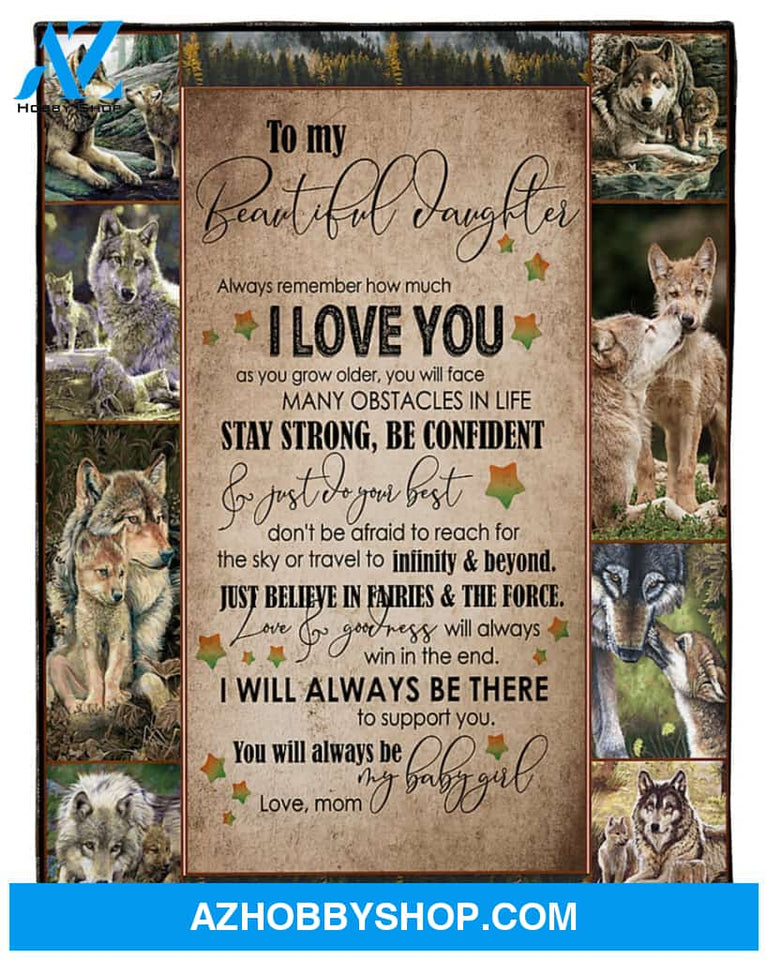 AZ
HOBBY SHOP
To my
Beautiful daughter
Always remember how much
I LOVE YOU
as you grow older, you will face
MANY OBSTACLES IN LIFE
STAY STRONG, BE CONFIDENT
& just do your best
don't be afraid to reach for
the sky or travel to infinity & beyond.
JUST BELIEVE IN FAIRIES & THE FORCE.
Love & goodness will always
win in the end.
I WILL ALWAYS BE THERE
to support you.
You will always be
my baby girl
Love, mom
AZHOBBYSHOP.COM